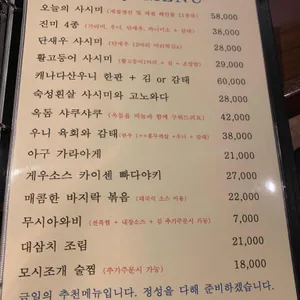 오늘의 사시미 58,000
진미 4종 38,000
단새우 사시미 28,000
활고등어 사시미 29,000
캐나다산우니 한판 + 김 or 감태 60,000
숙성흰살 사시미와 고노와다 28,000
옥돔 샤쿠샤쿠 42,000
우니 육회와 감태 38,000
아구 가라아게 21,000
게우소스 카이센 빠다야키 27,000
매콤한 바지락 볶음 (태국식 소스 사용) 22,000
무시아와비 (전복찜 + 내장소스 + 김 추가주문시 가능) 7,000
대삼치 조림 21,000
모시조개 술찜 (추가주문시 가능) 18,000
금일의 추천메뉴입니다. 정성을 다해 준비하겠습니다.